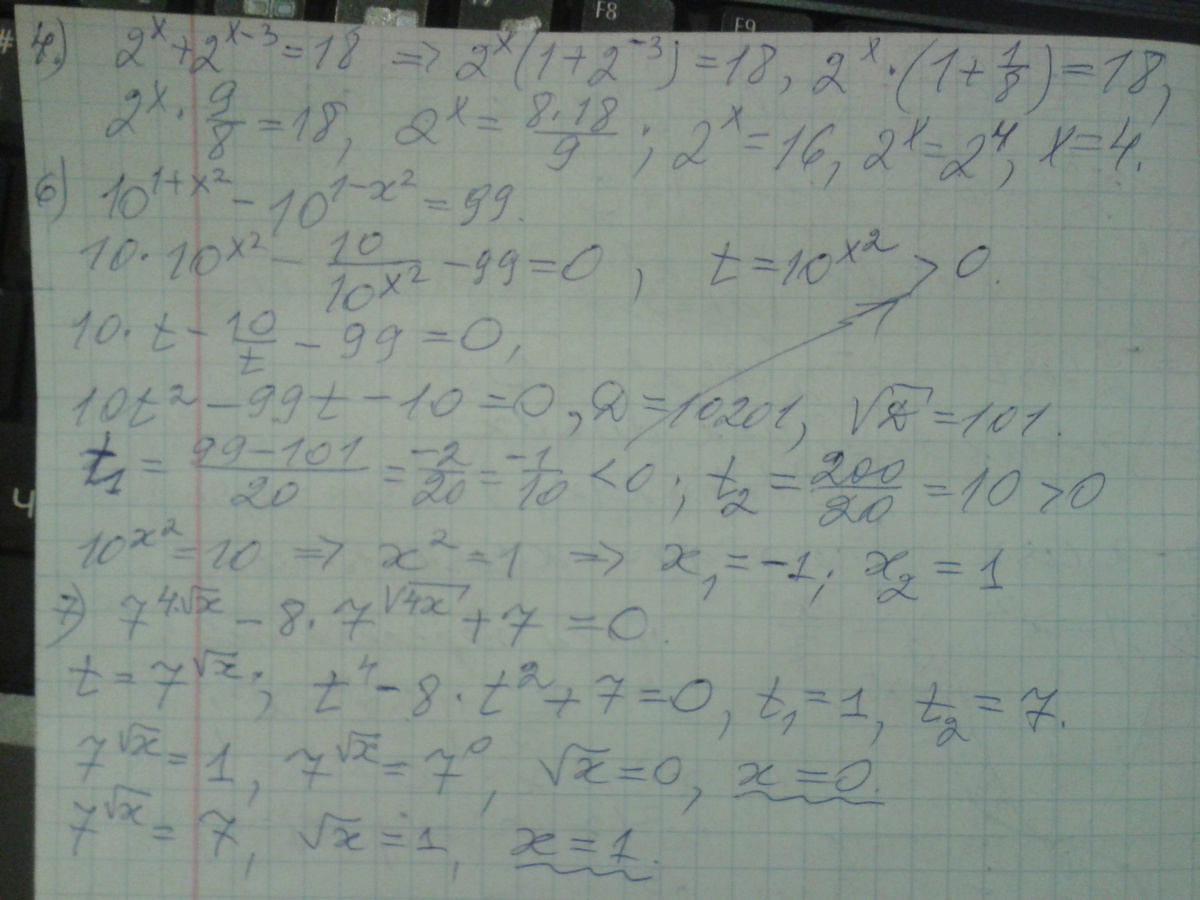 F8
F9
#
4.) 2^x + 2^{x-3} = 18 => 2^x(1 + 2^{-3}) = 18, 2^x · (1 + 1/8) = 18,
2^x · 9/8 = 18, 2^x = 8·18/9; 2^x = 16, 2^x = 2^4, x = 4.
6) 10^{1+x^2} - 10^{1-x^2} = 99.
10 · 10^{x^2} - 10/10^{x^2} - 99 = 0, t = 10^{x^2} > 0.
10 · t - 10/t - 99 = 0,
10t^2 - 99t - 10 = 0, D = 10201, √D = 101.
t_1 = (99-101)/20 = -2/20 = -1/10 < 0; t_2 = 200/20 = 10 > 0
Ч
10^{x^2} = 10 => x^2 = 1 => x_1 = -1; x_2 = 1
7) 7^{4√x} - 8 · 7^{√4x} + 7 = 0.
t = 7^{√x}; t^4 - 8 · t^2 + 7 = 0, t_1 = 1, t_2 = 7.
7^{√x} = 1, 7^{√x} = 7^0, √x = 0, x = 0.
7^{√x} = 7, √x = 1, x = 1.